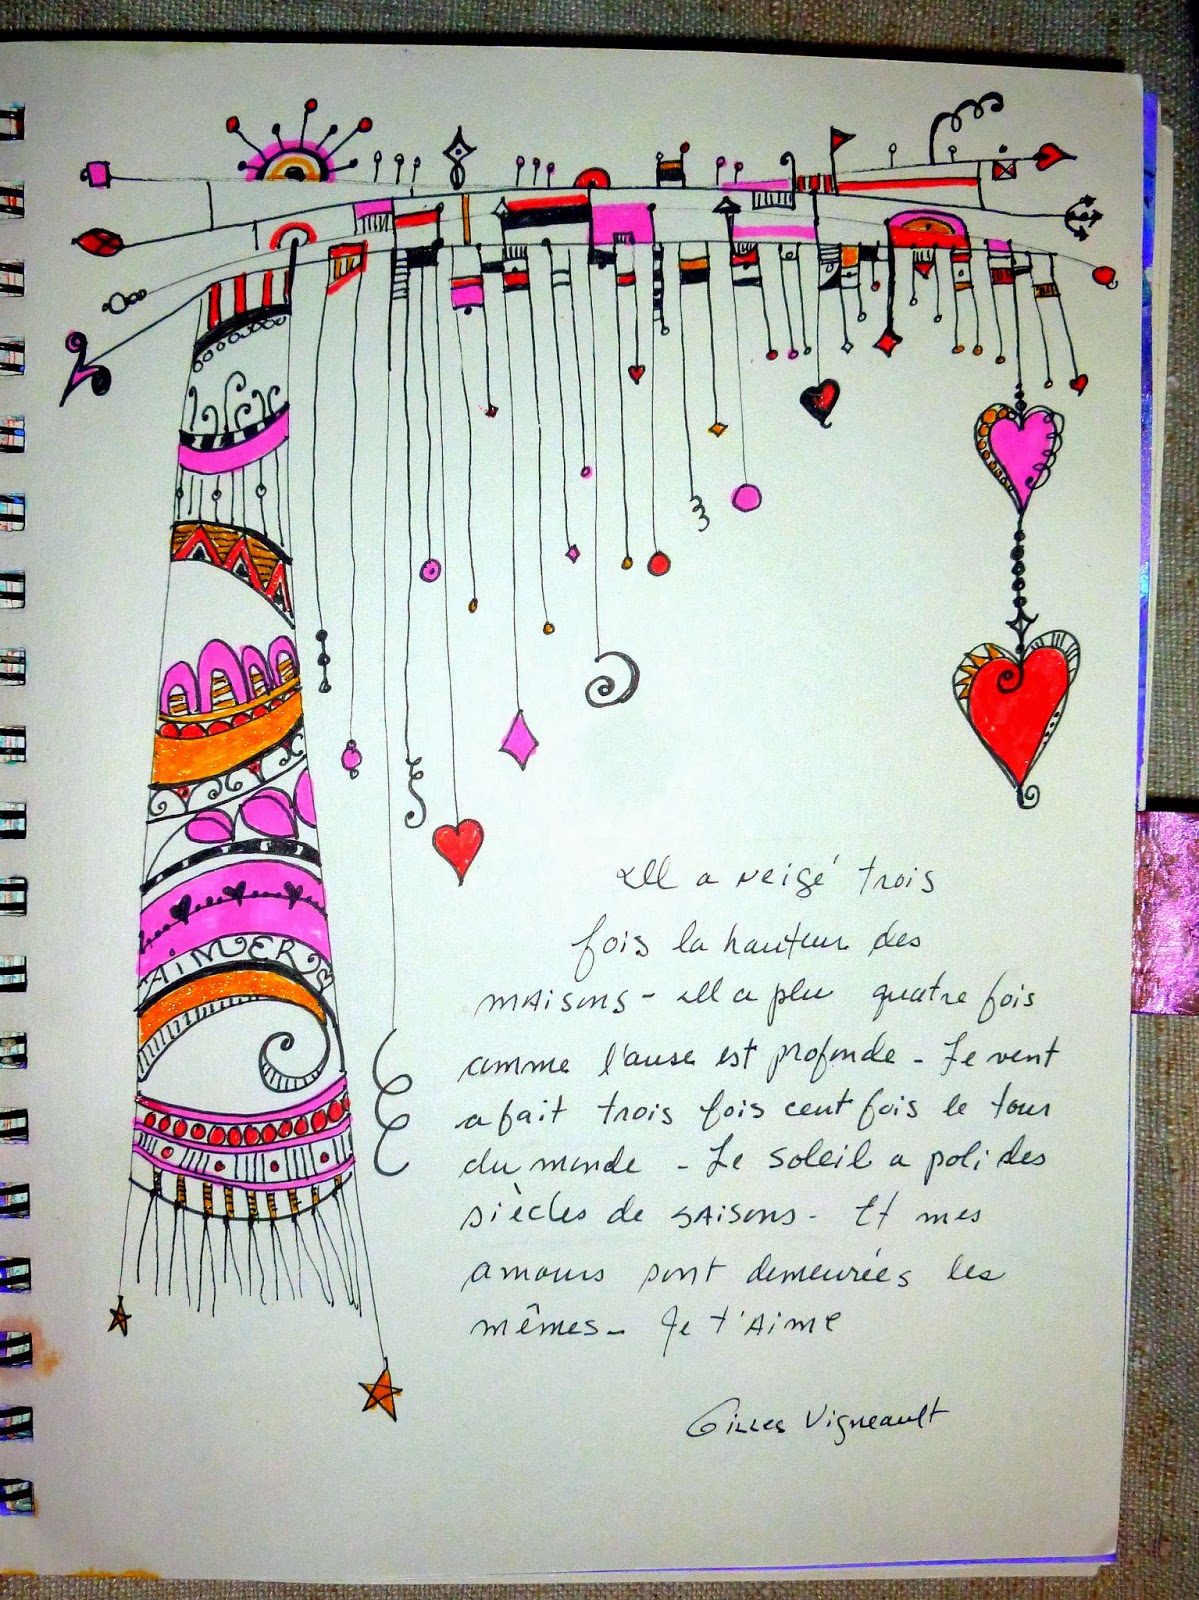 AIMER
Il a neigé trois
fois la hauteur des
maisons - Il a plu quatre fois
comme l'anse est profonde - Le vent
a fait trois fois cent fois le tour
du monde - Le soleil a poli des
siècles de saisons - Et mes
amours sont demeurées les
mêmes - Je t'Aime
Gilles Vigneault